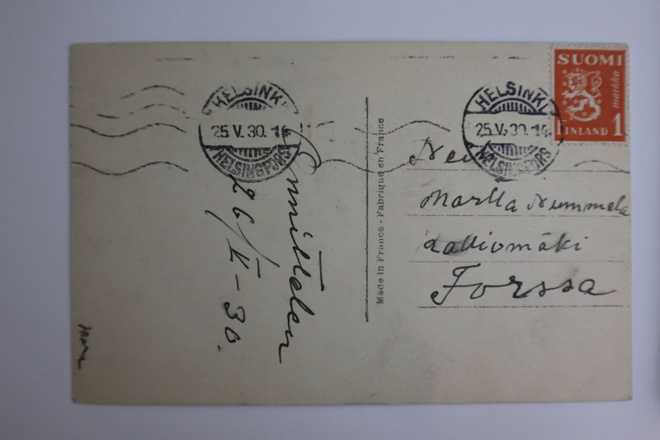 HELSINKI
25.V.30.14
HELSINGFORS
Onnittelen
26/V-30.
Made in France - Fabriqué en France
HELSINKI
25.V.30.14
HELSINGFORS
SUOMI
markka
FINLAND 1
Martta Nummela
Kalliomäki
Forssa